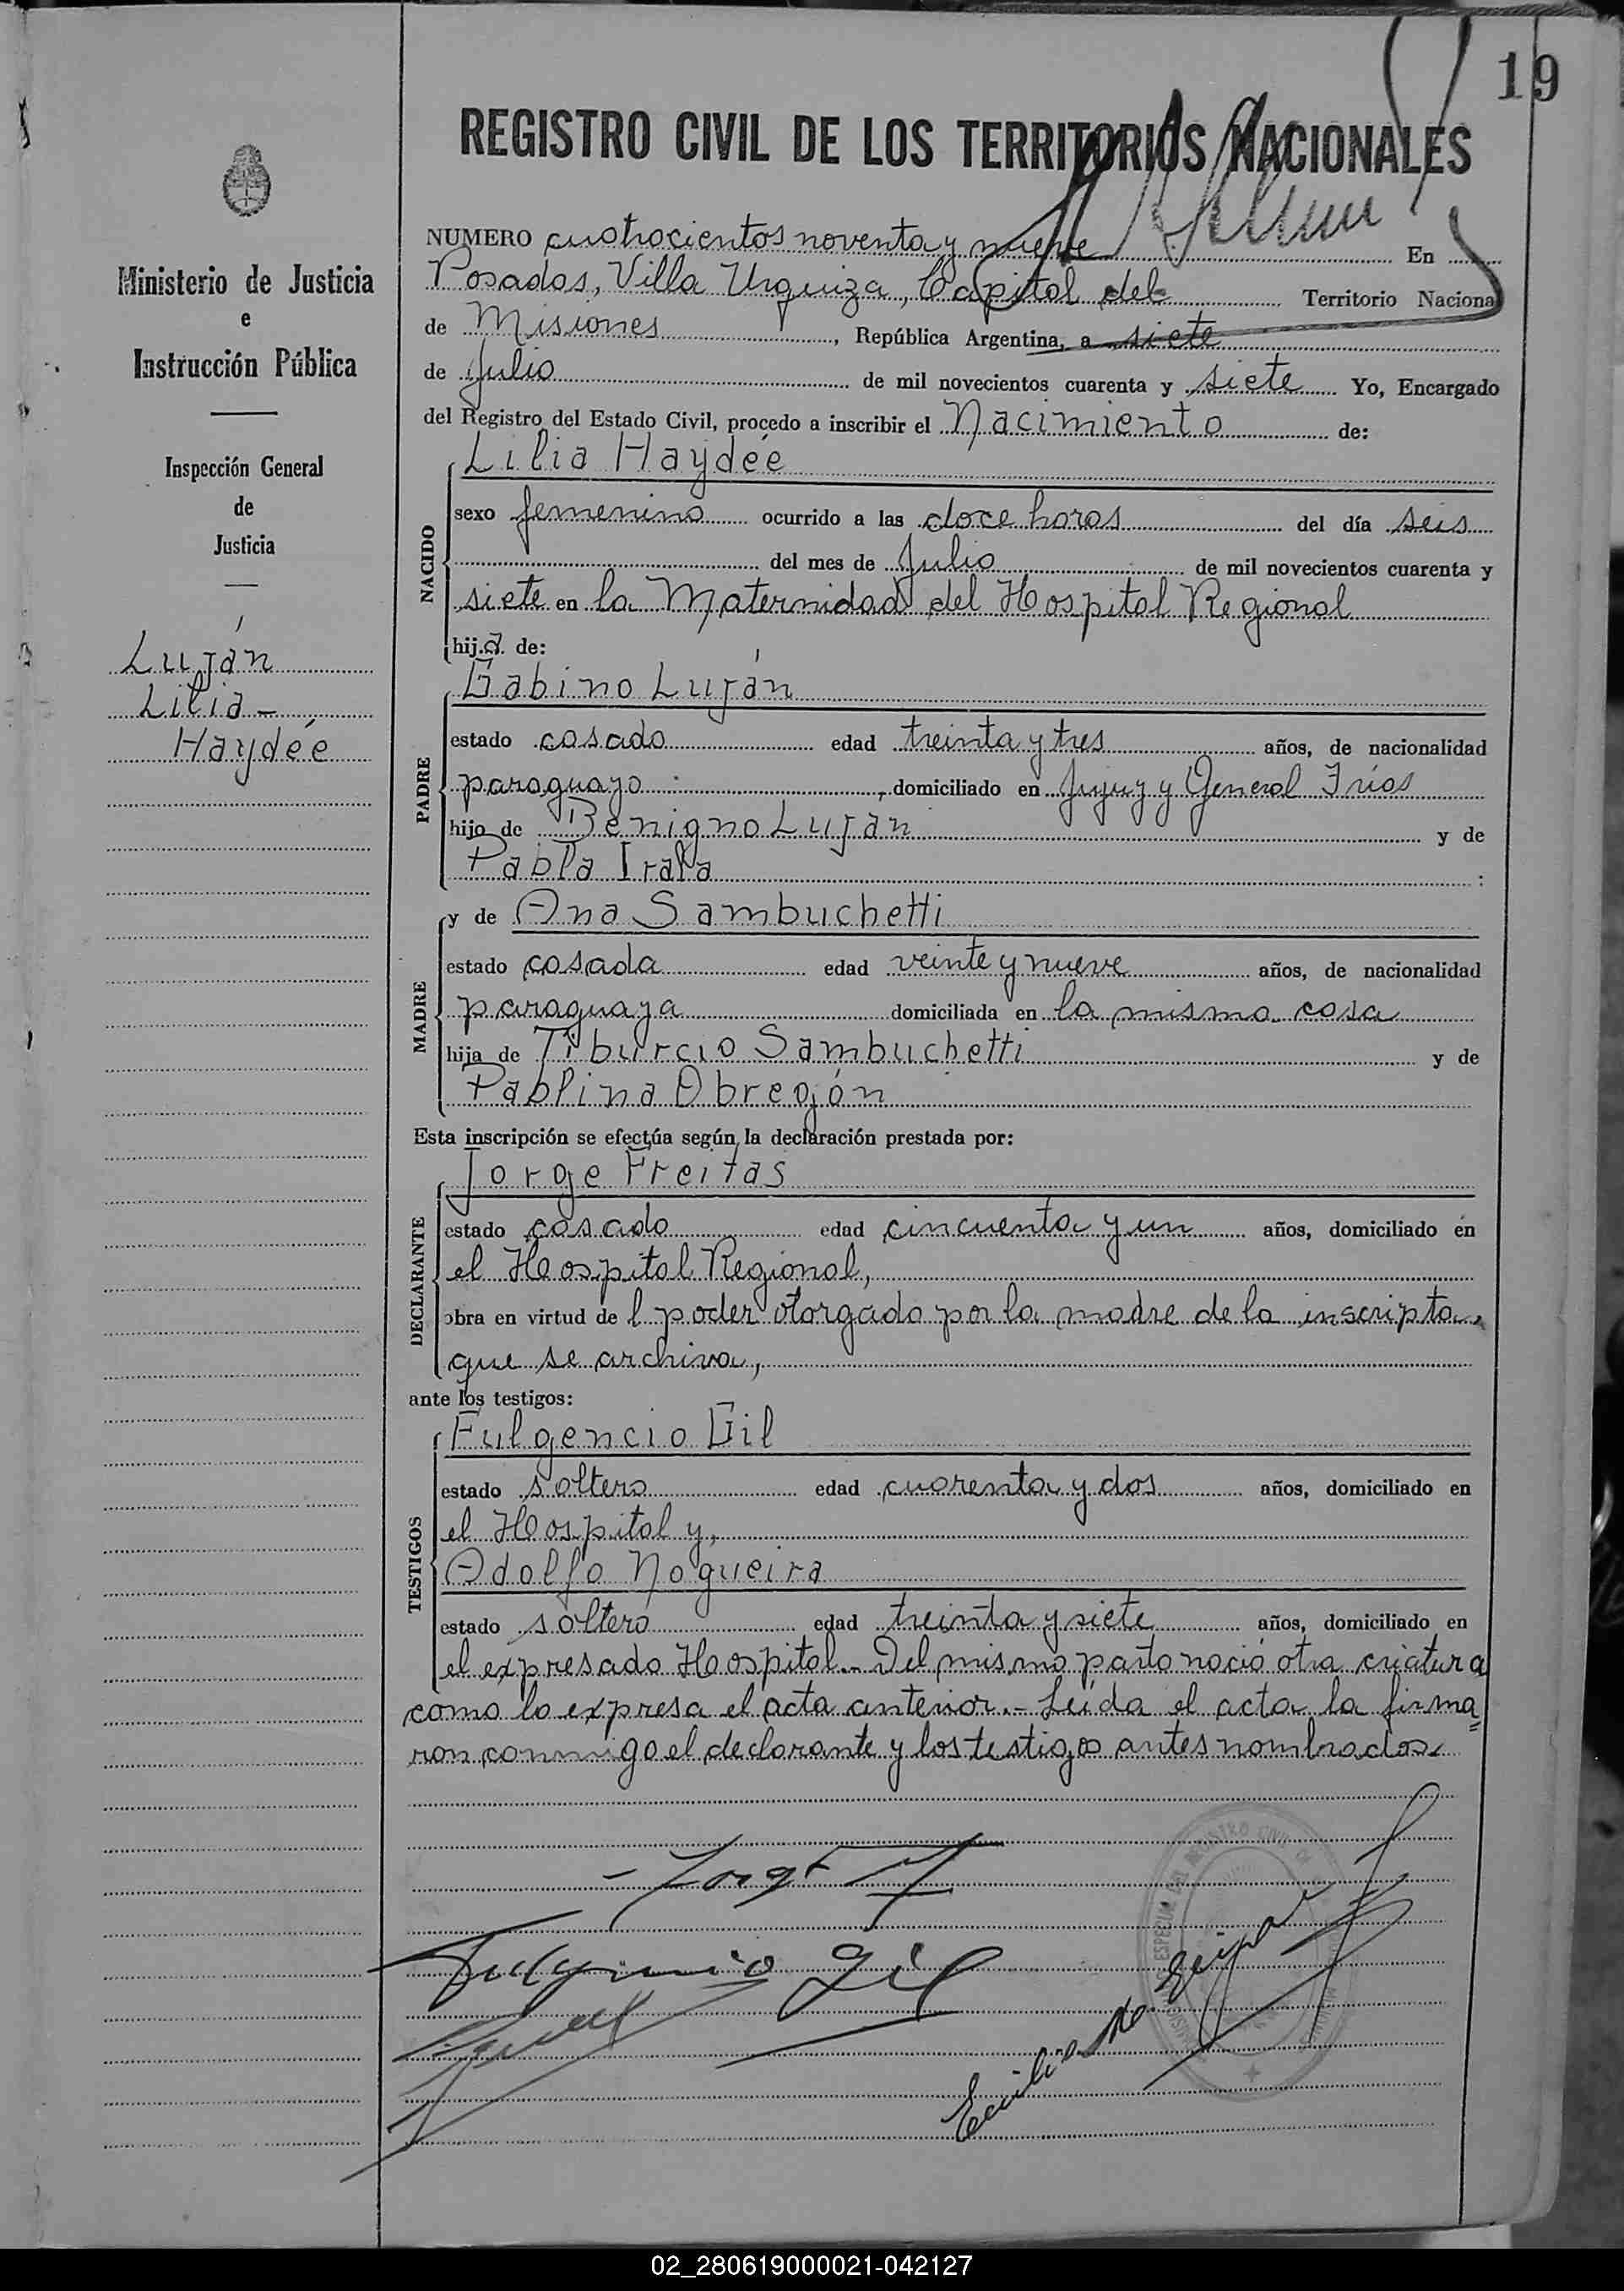 19
REGISTRO CIVIL DE LOS TERRITORIOS NACIONALES
Ministerio de Justicia
e
Instrucción Pública
Inspección General
de
Justicia
Luján
Lilia-
Haydée
NUMERO cuatrocientos noventa y nueve En
Posadas, Villa Urquiza, Capital del Territorio Naciona
de Misiones, República Argentina, a siete
de Julio de mil novecientos cuarenta y siete Yo, Encargado
del Registro del Estado Civil, procedo a inscribir el Nacimiento de:
NACIDO
Lilia Haydée
sexo femenino ocurrido a las doce horas del día seis
del mes de Julio de mil novecientos cuarenta y
siete en la Maternidad del Hospital Regional
hija de:
PADRE
Gabino Luján
estado casado edad treinta y tres años, de nacionalidad
paraguayo, domiciliado en Jujuy y General Frías
hijo de Benigno Luján y de
Pabla Irala :
MADRE
y de Ana Sambuchetti
estado casada edad veinte y nueve años, de nacionalidad
paraguaya domiciliada en la misma casa
hija de Tiburcio Sambuchetti y de
Pablina Obregón
Esta inscripción se efectúa según la declaración prestada por:
DECLARANTE
Jorge Freitas
estado casado edad cincuenta y un años, domiciliado en
el Hospital Regional,
obra en virtud de l poder otorgado por la madre de la inscripta,
que se archiva,
ante los testigos:
TESTIGOS
Fulgencio Gil
estado soltero edad cuarenta y dos años, domiciliado en
el Hospital y,
Adolfo Nogueira
estado soltero edad treinta y siete años, domiciliado en
el expresado Hospital.- Del mismo parto nació otra criatura
como lo expresa el acta anterior.- Leída el acta la firma=
ron conmigo el declarante y los testigos antes nombrados.
Fulgencio Gil
02_280619000021-042127